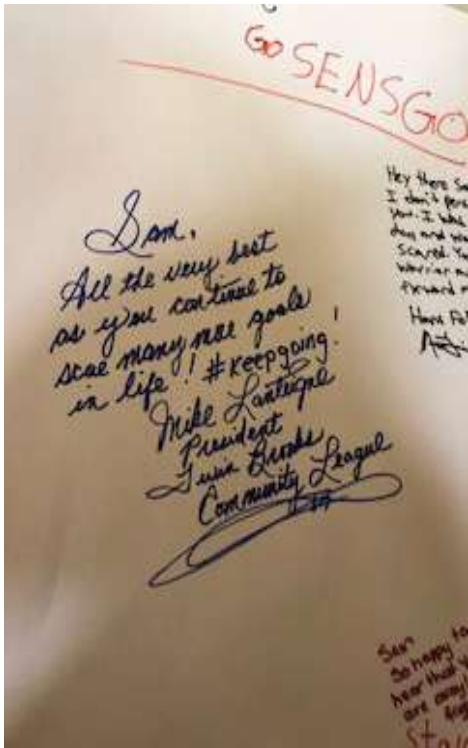 GO SENSGO
Sam,
All the very best
as you continue to
score many more goals
in life! #keepgoing!
Mike Lanteigne
President
Twin Brooks
Community League
Hey there Sa
I don't pers
you. I was
day and wa
Scared. You
Warrior an
forward m
Have Fa
Sam
So happy to
hear that y
are away
St